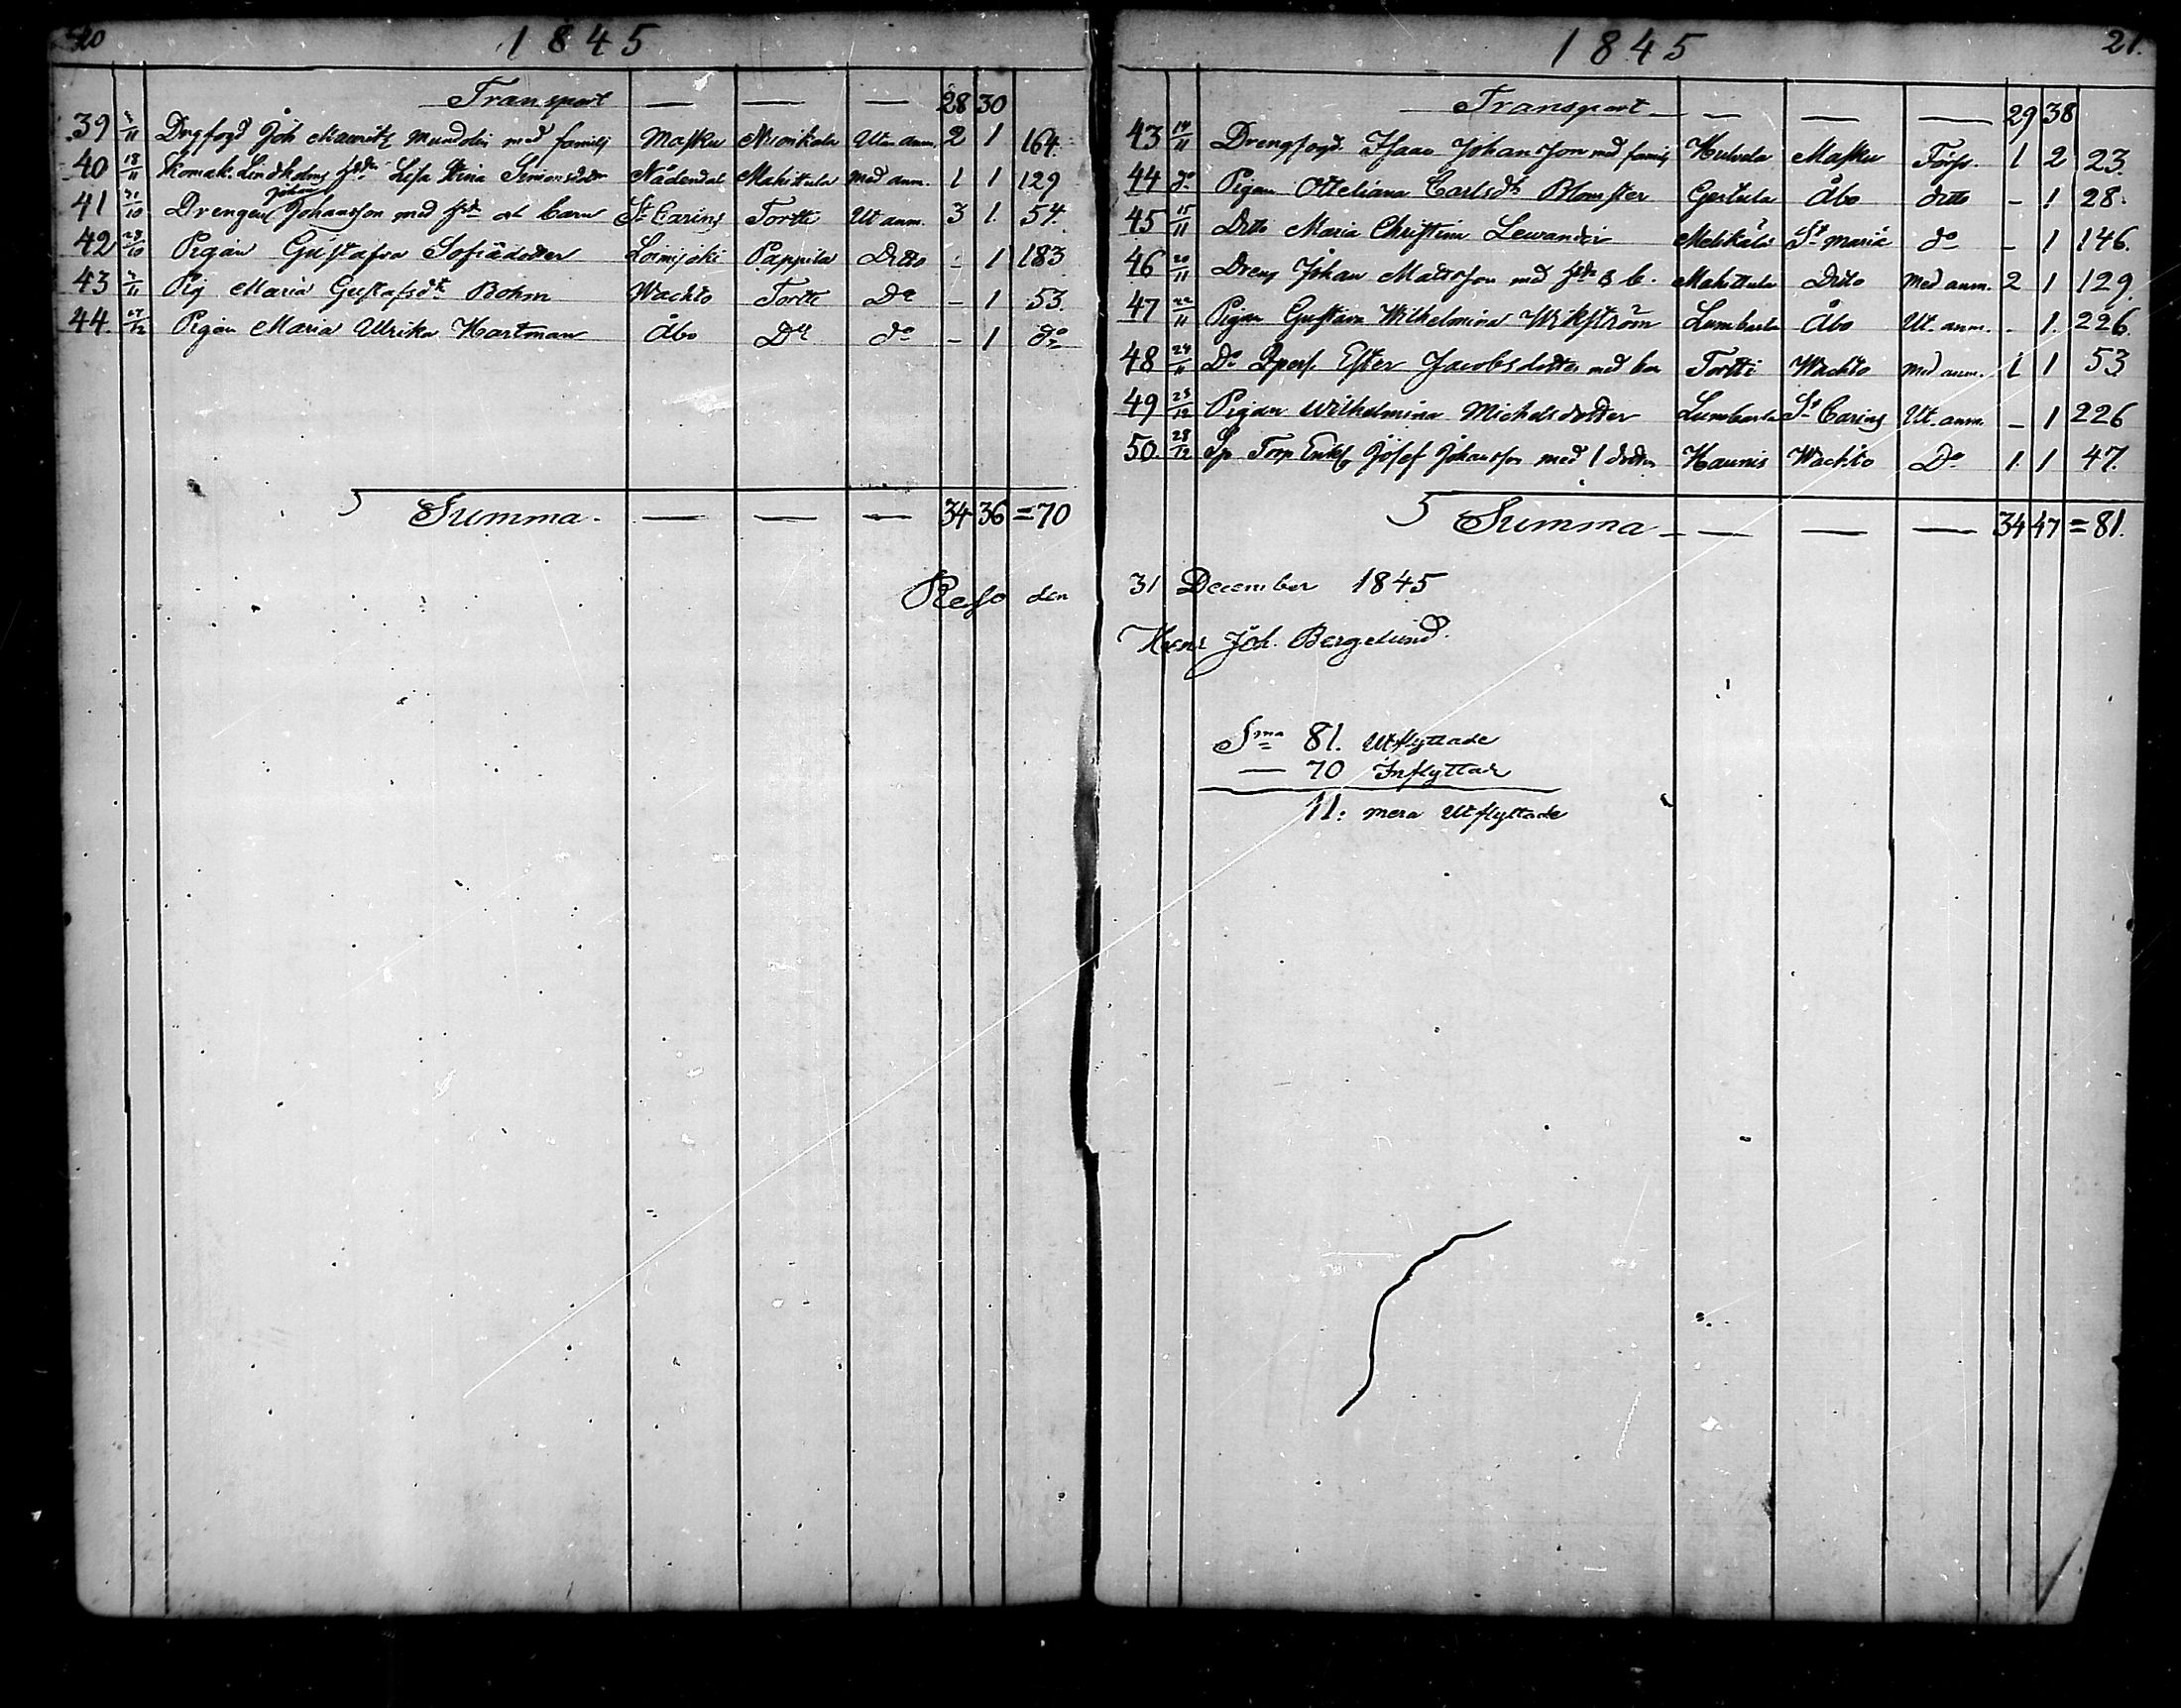 20 1845
Transport — — — 28 30
39 2/11 Drgfogd Joh Mauritz Mundelin med familj Masku Monikala Utan anm. 2 1 164.
40 18/11 Skomak. Lindholms hstr Lisa Stina Simonsdotr Nådendal Mahittula med anm. 1 1 129
41 31/10 Drengen Johan Johansson med hstr och barn St Carins Tortti Ut anm. 3 1. 54.
42 28/10 Pigan Gustafva Sofiädotter Loimijoki Pappila Ditto - 1 183
43 2/11 Pig Maria Gustafsdr Bohm Wachto Tortti Do - 1 53.
44. 27/12 Pigan Maria Ulrika Hartman Åbo Do do - 1 do
Summa. — — — 34 36 = 70
Reso den
1845 21.
Transport — — — 29 38
43 14/11 Drengfogd. Isaac Johansson med familj Hulvela Masku Förp. 1 2 23.
44 do Pigan Otteliana Carlsdr Blomster Gertula Åbo ditto - 1 28.
45 15/11 Ditto Maria Christina Lewander Mälikälä St maria do - 1 146.
46 20/11 Dreng Johan Matsson med hstr & b. Mahittula Ditto med anm. 2 1 129.
47 22/11 Pigan Gustava Wilhelmina Wikström Lumbarla Åbo Ut. anm. - 1. 226.
48 24/11 Do Ester Jacobsdotter med bar Tortti Wachto med anm. 1 1 53
49 25/12 Pigan Wilhelmina Michelsdotter Lumbarla St Carins Ut. anm. - 1 226
50 28/12 Torp Enkl Josef Johansson med 1 dotter Kaunis Wachto Do 1. 1 47.
Summa — — — 34 47 = 81.
31 December 1845
Henr Joh. Bergelund.
Sma 81. Utflyttade
— 70 Inflyttade
11: mera Utflyttade